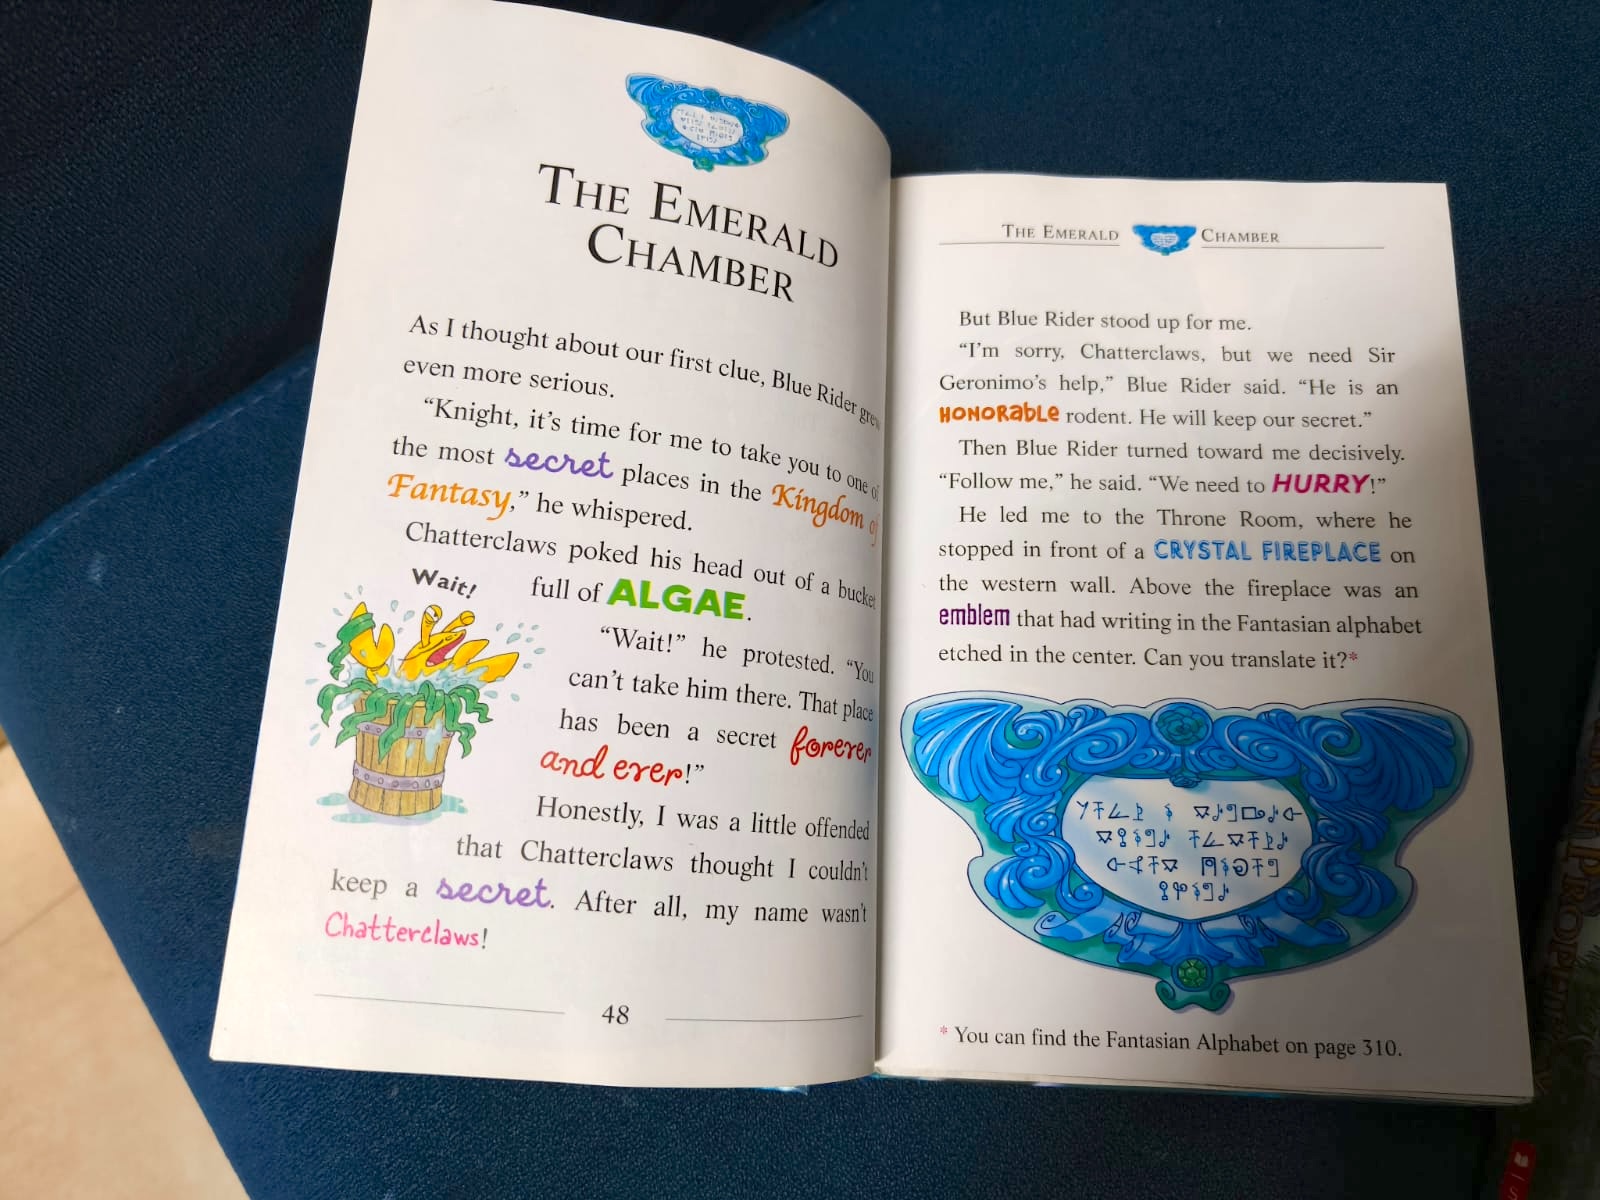 THE EMERALD
CHAMBER
As I thought about our first clue, Blue Rider grew
even more serious.
“Knight, it’s time for me to take you to one of
the most secret places in the Kingdom of
Fantasy,” he whispered.
Chatterclaws poked his head out of a bucket
full of ALGAE.
Wait!
“Wait!” he protested. “You
can’t take him there. That place
has been a secret forever
and ever!”
Honestly, I was a little offended
that Chatterclaws thought I couldn’t
keep a secret. After all, my name wasn’t
Chatterclaws!
48
THE EMERALD CHAMBER
But Blue Rider stood up for me.
“I’m sorry, Chatterclaws, but we need Sir
Geronimo’s help,” Blue Rider said. “He is an
HONORABLE rodent. He will keep our secret.”
Then Blue Rider turned toward me decisively.
“Follow me,” he said. “We need to HURRY!”
He led me to the Throne Room, where he
stopped in front of a CRYSTAL FIREPLACE on
the western wall. Above the fireplace was an
emblem that had writing in the Fantasian alphabet
etched in the center. Can you translate it?*
* You can find the Fantasian Alphabet on page 310.